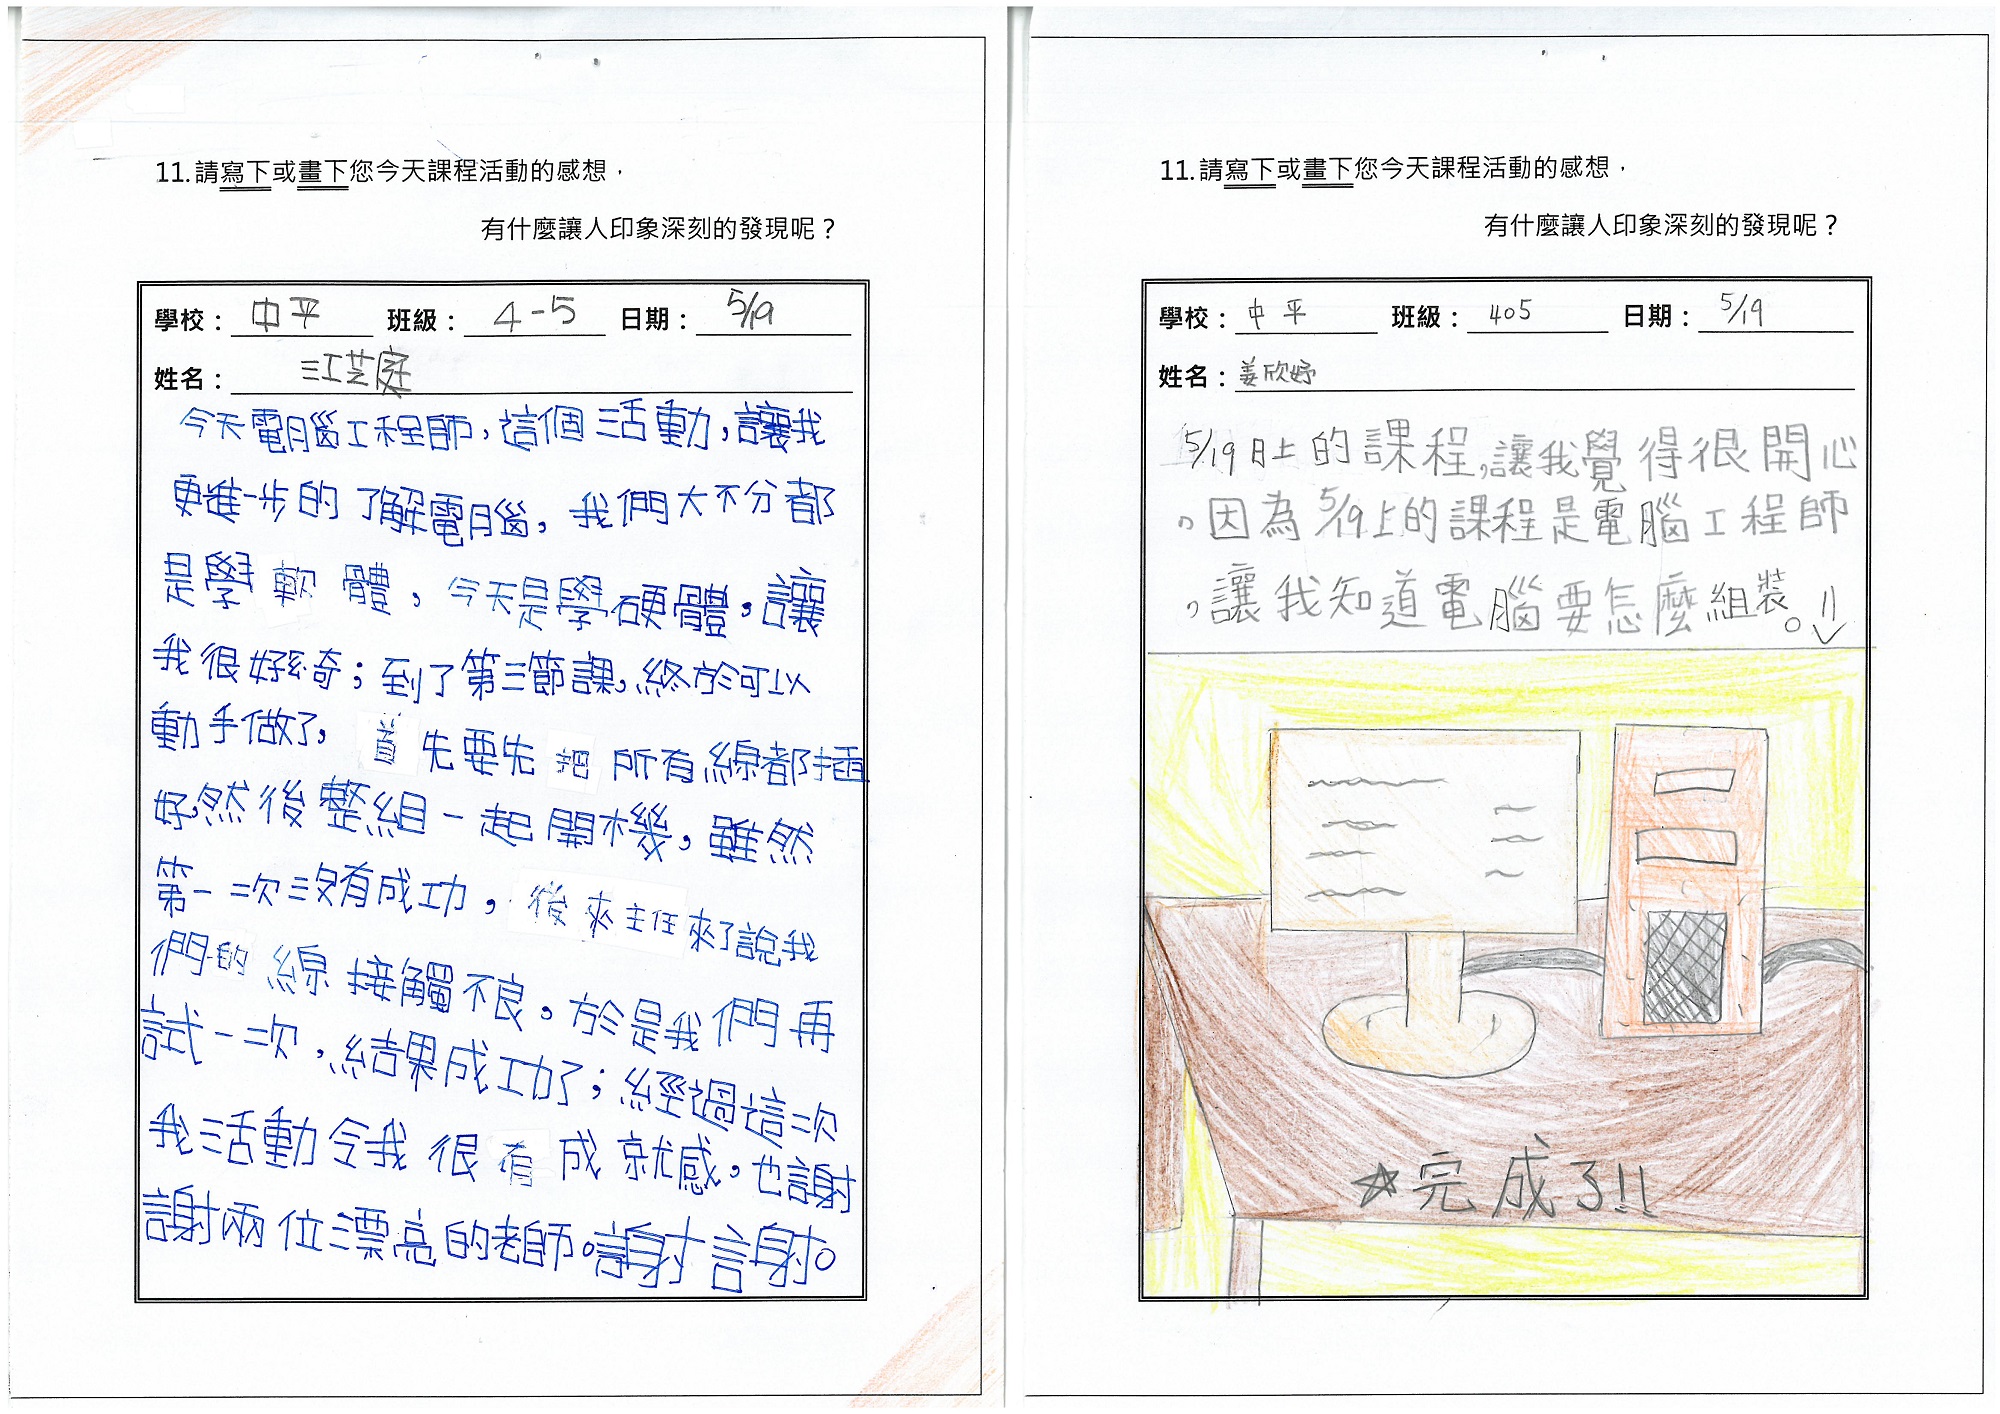 11.請寫下或畫下您今天課程活動的感想，
有什麼讓人印象深刻的發現呢？
學校：中平 班級：4-5 日期：5/19
姓名：江芝庭
今天電腦工程師，這個活動，讓我
更進一步的了解電腦，我們大不分都
是學軟體，今天是學硬體，讓
我很好奇；到了第三節課，終於可以
動手做了，首先要先把所有線都插
好，然後整組一起開機，雖然
第一次沒有成功，後來主任來了說我
們的線接觸不良。於是我們再
試一次，結果成功了；經過這次
我活動令我很有成就感，也謝
謝兩位漂亮的老師。謝謝。
11.請寫下或畫下您今天課程活動的感想，
有什麼讓人印象深刻的發現呢？
學校：中平 班級：405 日期：5/19
姓名：姜欣妤
5/19日上的課程，讓我覺得很開心
，因為5/19上的課程是電腦工程師
，讓我知道電腦要怎麼組裝。
☆完成了!!